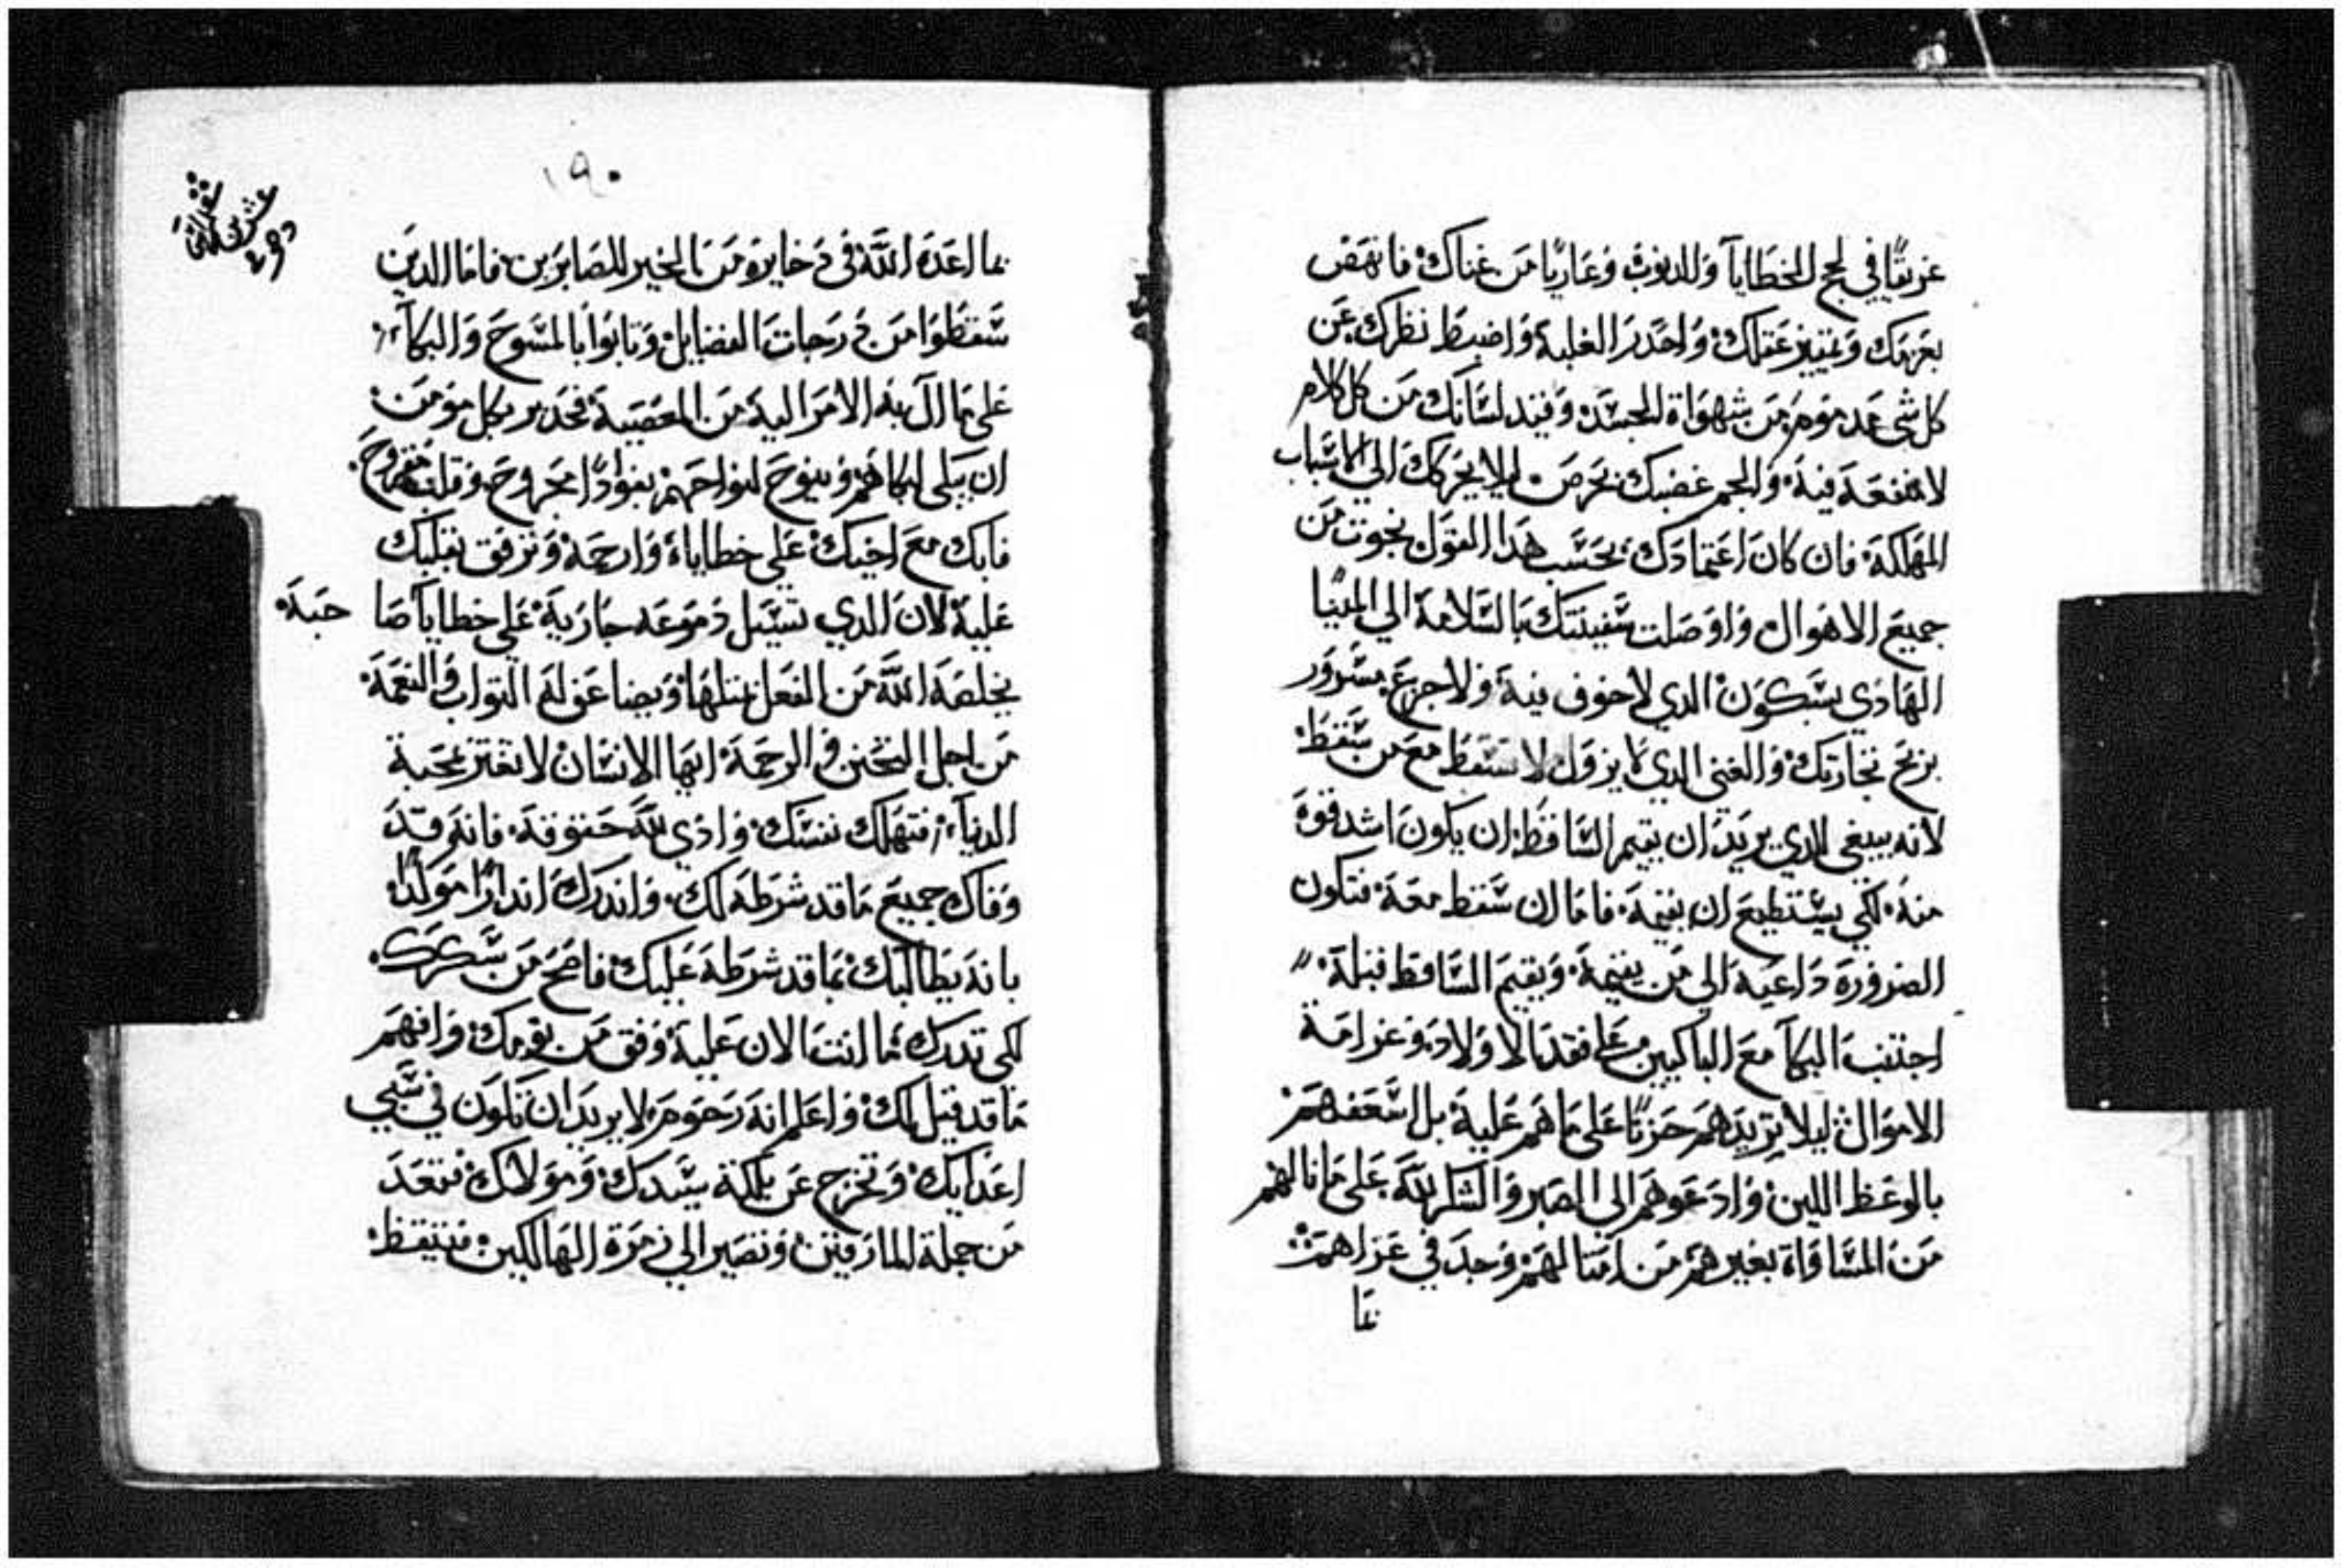 غريقًا في لجج الخطايا والدنوب وعاريًا من غناك فانهض
بعزمك وتمييز عقلك واحدر الغلبة واضبط نظرك عن
كل شى مدموم من شهواة الجسد وقيد لسانك من كل كلام
لا منفعة فيه والجم غضبك بحرص ليلا يحركك الي الاسباب
المهلكة فان كان اعتمادك بحسب هدا القول نجوت من
جميع الاهوال واوصلت سفينتك بالسلامة الي المينا
الهادي بسكون الدي لا خوف فيه ولا جزع بسرور
بربح تجارتك والغنى الدي لا يزول لا تسقط مع من سقط
لانه ينبغي للدي يريد ان يقيم الساقط ان يكون اشد قوة
منه لكي يستطيع ان يقيمه فاما ان سقط معه فتكون
الضرورة داعية الي من يقيمه ويقيم الساقط قبله
اجتنب البكآ مع الباكيين على فقد الاولاد وغرامة
الاموال ليلا تزيدهم حزنًا على ما هم عليه بل اسعفهم
بالوعظ اللين وادعوهم الي الصبر والشكر لله على ما نالهم
من المساواة بغيرهم من امتالهم وجد في عزاهم
بما
١٩٠
بما اعده الله في دخايره من الخير للصابرين فاما الدين
سقطوا من درجات الفضايل وتابوا بالمسوح والبكآء
على ما آل به الامر اليه من المعصية فجدير بكل مومن
ان يبكي لبكاهم وينوح لنواحهم بفوادًا مجروح وقلب مقروح
فابك مع اخيك على خطاياه وارحمه وترفق بقلبك
عليه لان الدي تسيل دموعه جارية على خطايا صا حبه
يخلصه الله من الفعل بمتلها ويضاعف له التواب والنعمة
من اجل التحنن والرحمة ايها الانسان لا تغتر بمحبة
الدنيا فتهلك نفسك وادي لله حقوقه فانه قد
وفاك جميع ما قد شرطه لك واندرك اندارًا موكدًا
بانه يطالبك بما قد شرطه عليك فاصح من سكرك
لكي تدرك ما انت الان عليه وفق من نومك وافهم
ما قد قيل لك واعلم انه رحوم لا يريد ان تكون في سبي
اعدايك وتخرج عن ملكة سيدك ومولاك فتعد
من جملة المارقين وتصير الي زمرة الهالكين فتيقظ